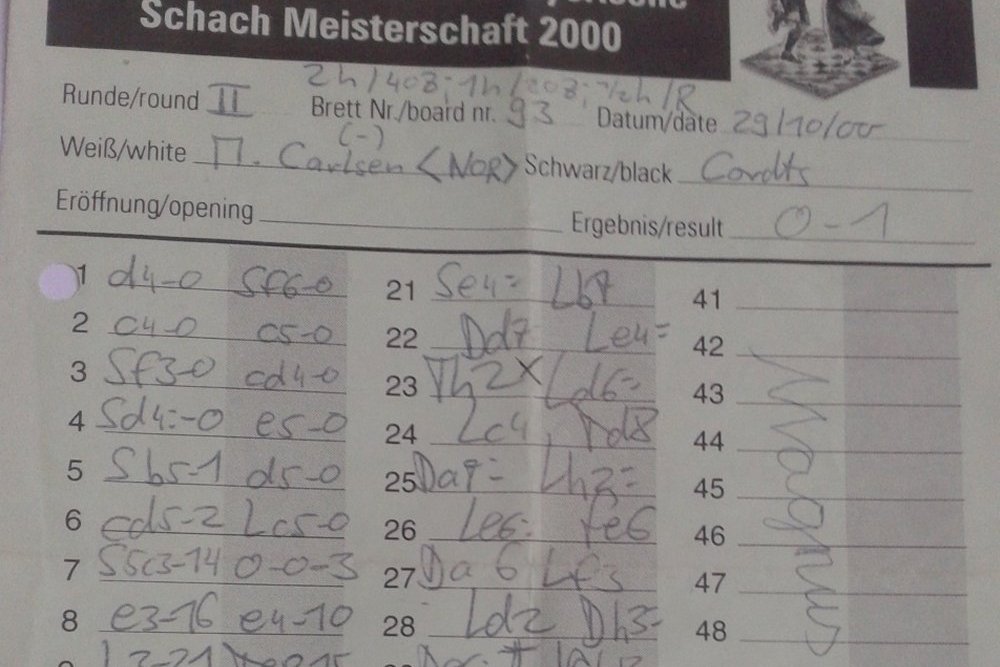 Schach Meisterschaft 2000
2h/40z; 1h/20z; 1/2h/R
Runde/round II Brett Nr./board nr. 93 Datum/date 29/10/00
(-)
Weiß/white M. Carlsen <NOR> Schwarz/black Cordts
Eröffnung/opening Ergebnis/result 0-1
1 d4-0 Sf6-0 21 Se4= Lb7 41
2 c4-0 c5-0 22 Dd7 Le4= 42
3 Sf3-0 cd4-0 23 Th2x Ld6= 43
4 Sd4:-0 e5-0 24 Lc4 Td8 44
5 Sb5-1 d5-0 25 Da7= Lh2= 45
6 cd5-2 Lc5-0 26 Le6: fe6 46
7 S5c3-14 0-0-3 27 Da6 Lf3 47
8 e3-16 e4-10 28 Ld2 Dh3= 48
Magnus